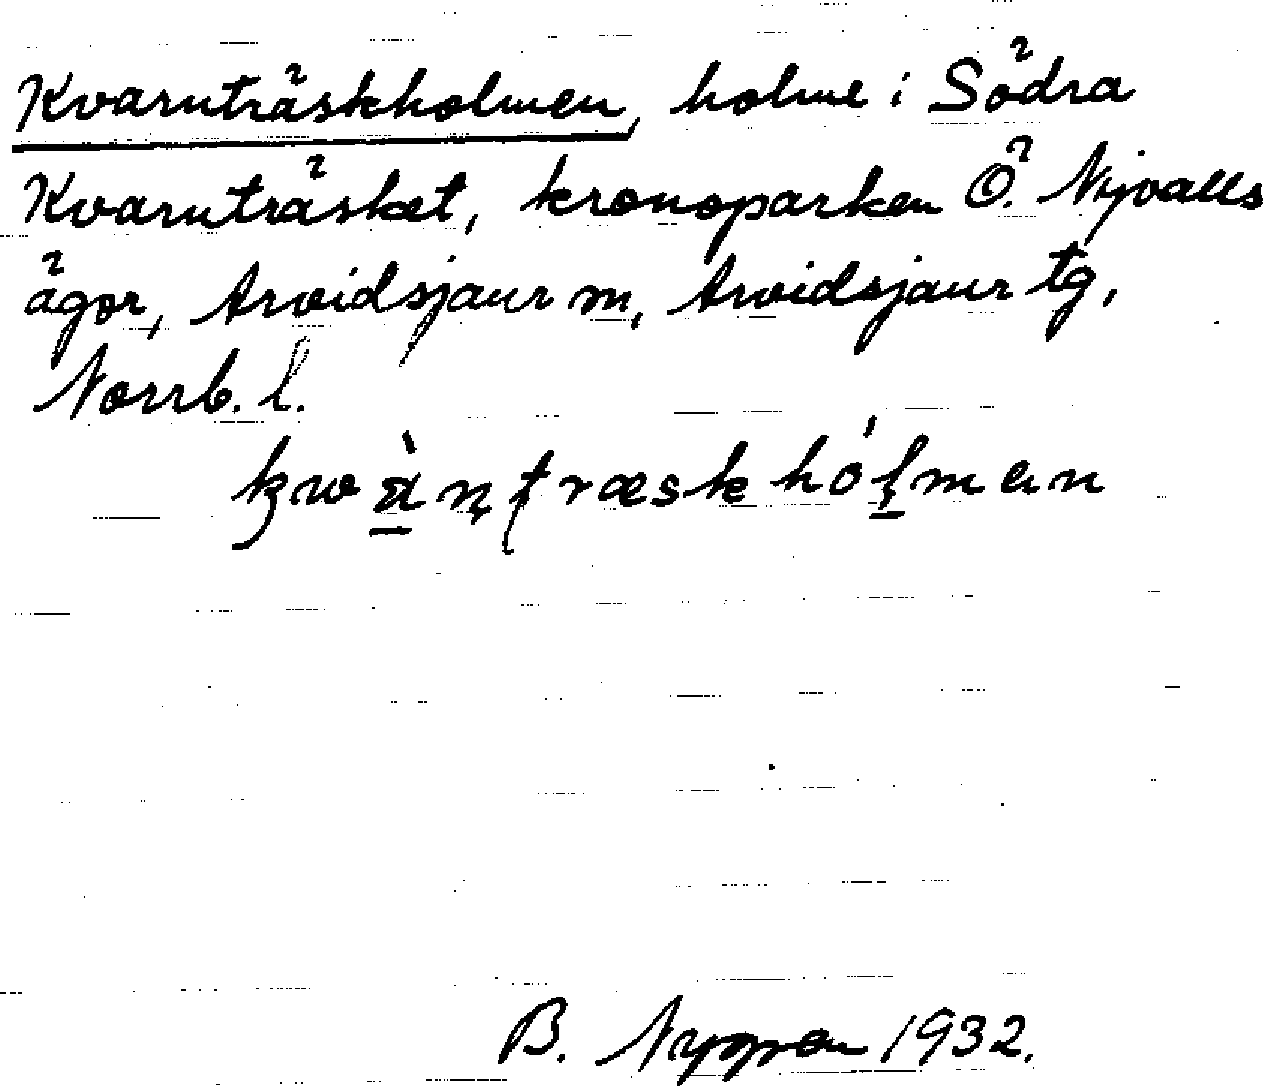 Kvarnträskholmen, holme i Södra
Kvarnträsket, kronoparken Ö. Nyvalls
ägor, Arvidsjaur sn, Arvidsjaur tg,
Norrb. l.
B. Nygren 1932.